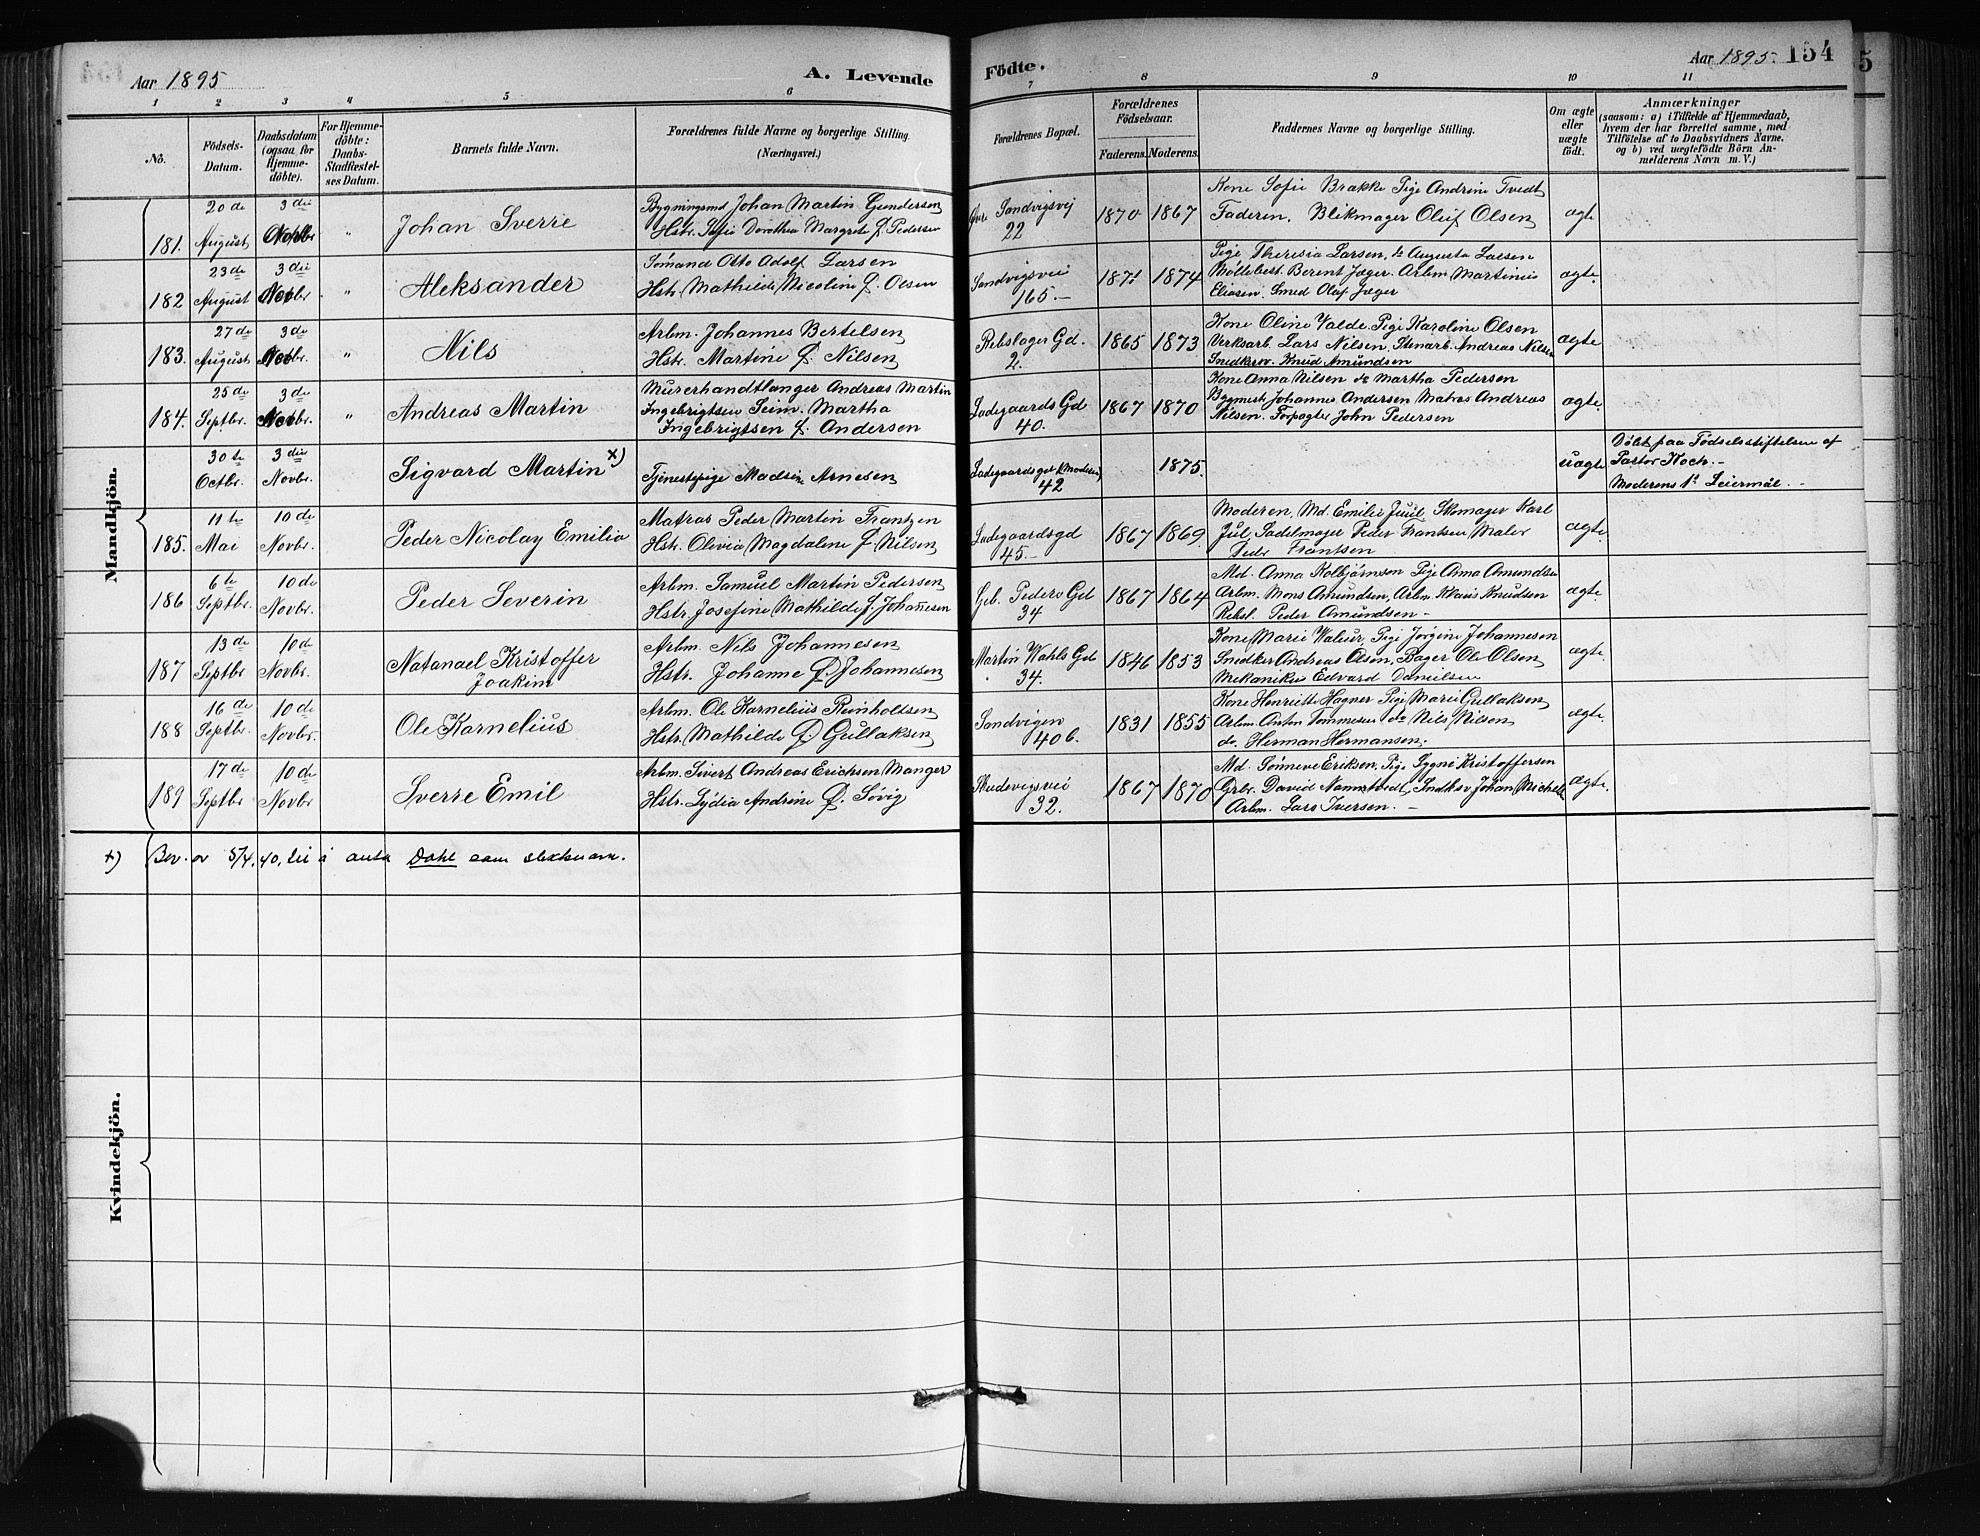 Aar 1895
A. Levende
Födte.
Aar 1895. 154
5
1 2 3 4 5 6 7 8 9 10 11
No.
Födsels-
Datum.
Daabsdatum
(ogsaa for
Hjemme-
döbte).
For Hjemme-
döbte:
Daabs-
Stadfæstel-
ses Datum.
Barnets fulde Navn.
Forældrenes fulde Navne og borgerlige Stilling.
(Næringsvei.)
Forældrenes Bopæl.
Forældrenes
Födselsaar.
Faderens. Moderens.
Faddernes Navne og borgerlige Stilling.
Om ægte
eller
uægte
födt.
Anmærkninger
(saasom: a) i Tilfælde af Hjemmedaab,
hvem der har forrettet samme, med
Tilföielse af to Daabsvidners Navne,
og b) ved uægtefödte Börn An-
melderens Navn m. V.)
Mandkjön.
181. 20de August 3die Novbr "
Johan Sverre
Bygningsmd Johan Martin Gundersen
Hstr. Sofie Dorothea Margrete f. Pedersen
Øvre Sandvigsvej
22
1870 1867
Kone Sofie Brække Pige Andrine Tvedt
Faderen, Blikmager Oluf Olsen
ægte
182 23de August 3die Novbr. "
Aleksander
Sømand Otto Adolf Larsen
Hstr. Mathilde Nicoline f. Olsen
Sandvigsveii
165.-
1871 1874
Pige Theresia Larsen, do Augusta Larsen
Møllebest. Berent Jæger. Arbm Martinius
Eliasen. Smed Olaf Jæger
ægte.
183. 27de August 3de Novbr. "
Nils
Arbm. Johannes Bertelsen
Hstr. Martine f. Nilsen
Rebslager Gd.
2.
1865 1873
Kone Oline Valde. Pige Karoline Olsen
Verksarb. Lars Nilsen, Stenarb. Andreas Nilsen
Snedkersv. Knud Amundsen
ægte.
184. 25de Septbr. 3de Novbr. "
Andreas Martin
Murerhandtlanger Andreas Martin
Ingebrigtsen Seim. Martha
Ingebrigtsen f. Andersen
Ladegaards Gd
40.
1867 1870
Kone Anna Nilsen do Martha Pedersen
Bygmest. Johannes Andersen Matros Andreas
Nilsen. Forpagter John Pedersen
ægte.
30te Octbr. 3die Novbr.
Sigvard Martin x)
Tjenestepige Madsine Arnesen
Ladegaardsget (Moderen)
42
1875.
uægte
Døbt paa Fødselsstiftelsen af
Pastor Koch.-
Moderens 1ste Leiermål.-
185. 11te Mai 10de Novbr.
Peder Nicolay Emilio
Matros Peder Martin Frantzen
Hstr. Olivia Magdalene f. Nilsen
Ladegaardsgd
45.-
1867 1869.
Moderen, Md. Emilie Juul, Skomager Karl
Jul, Sadelmager Peder Frantsen Maler
Peder Frantsen
ægte.
186 6te Septbr. 10de Novbr.
Peder Severin
Arbm. Samuel Martin Pedersen
Hstr. Josefine Mathilde f. Johanesen
Geb. Peders Gd
34
1867 1864
Md. Anna Kolbjørnsen Pige Anna Amundsen
Arbm. Mons Amundsen, Arbm Klaus Knudsen
Rebsl. Peder Amundsen-
ægte.
187 13de Septbr 10de Novbr.
Natanael Kristoffer
Joakim
Arbm. Nils Johannesen
Hstr. Johanne f. Johannesen
Martin Wahls Gd
34.
1846 1853
Kone Marie Waleur, Pige Jørgine Johannesen
Snedker Andreas Olsen, Bager Ole Olsen
Mekaniker Edvard Danielsen
ægte.
188 16de Septbr 10de Novbr.
Ole Kornelius
Arbm. Ole Kornelius Reinholtsen
Hstr. Mathilde f. Gullaksen
Sandvigen
40b.
1831 1855
Kone Henriette Hagner Pige Marie Gullaksen
Arbm. Anton Tommesen do Nils Nilsen
do. Herman Hermansen.
ægte.
189 17de Septbr 10de Novbr.
Sverre Emil
Arbm. Sivert Andreas Erichsen Manger
Hstr. Lydia Andrine f. Søvig
Skudevigsvei
32.
1867 1870
Md. Sønneve Eriksen, Pige Sygni Kristoffersen
Grbr. David Namtvedt, Sndksv Johan Michels
Arbm. Lars Iversen.-
ægte.
x) Bev. av 5/4.40, til å anta Dahl som slektsnavn.
Kvindekjön.